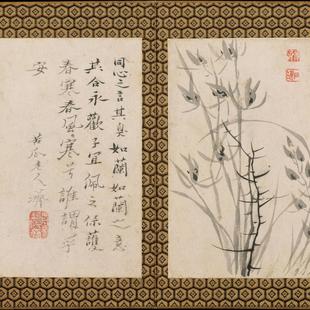 同心之言其臭如蘭如蘭之意
其合永歡子宜佩之保護
春寒春風寒兮誰謂草
安
苦瓜老人濟